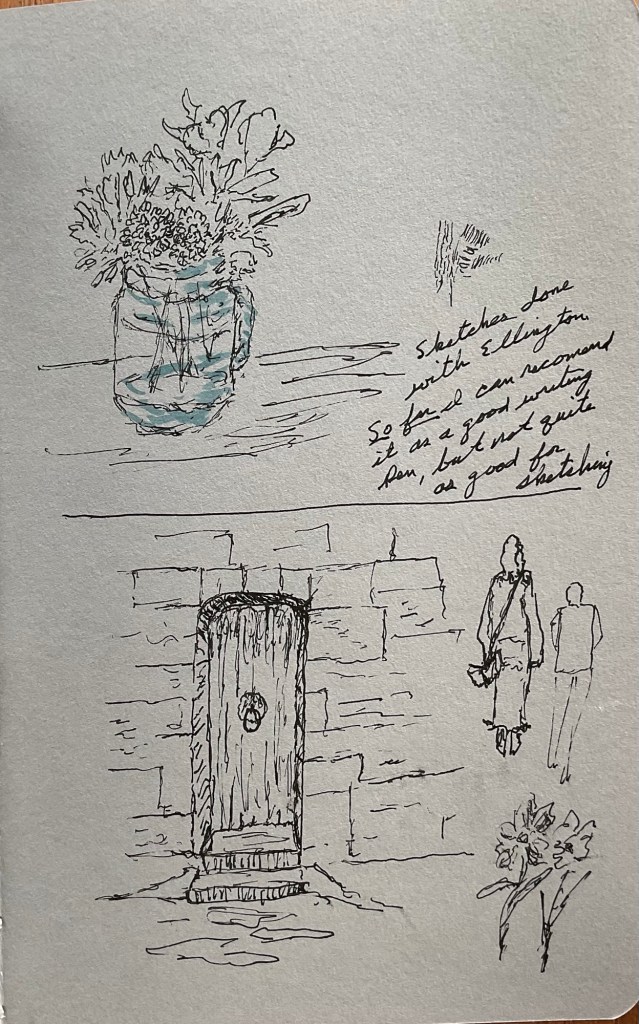 Sketches done
with Ellington.
So far I can recomend
it as a good writing
Pen, but not quite
as good for
sketching